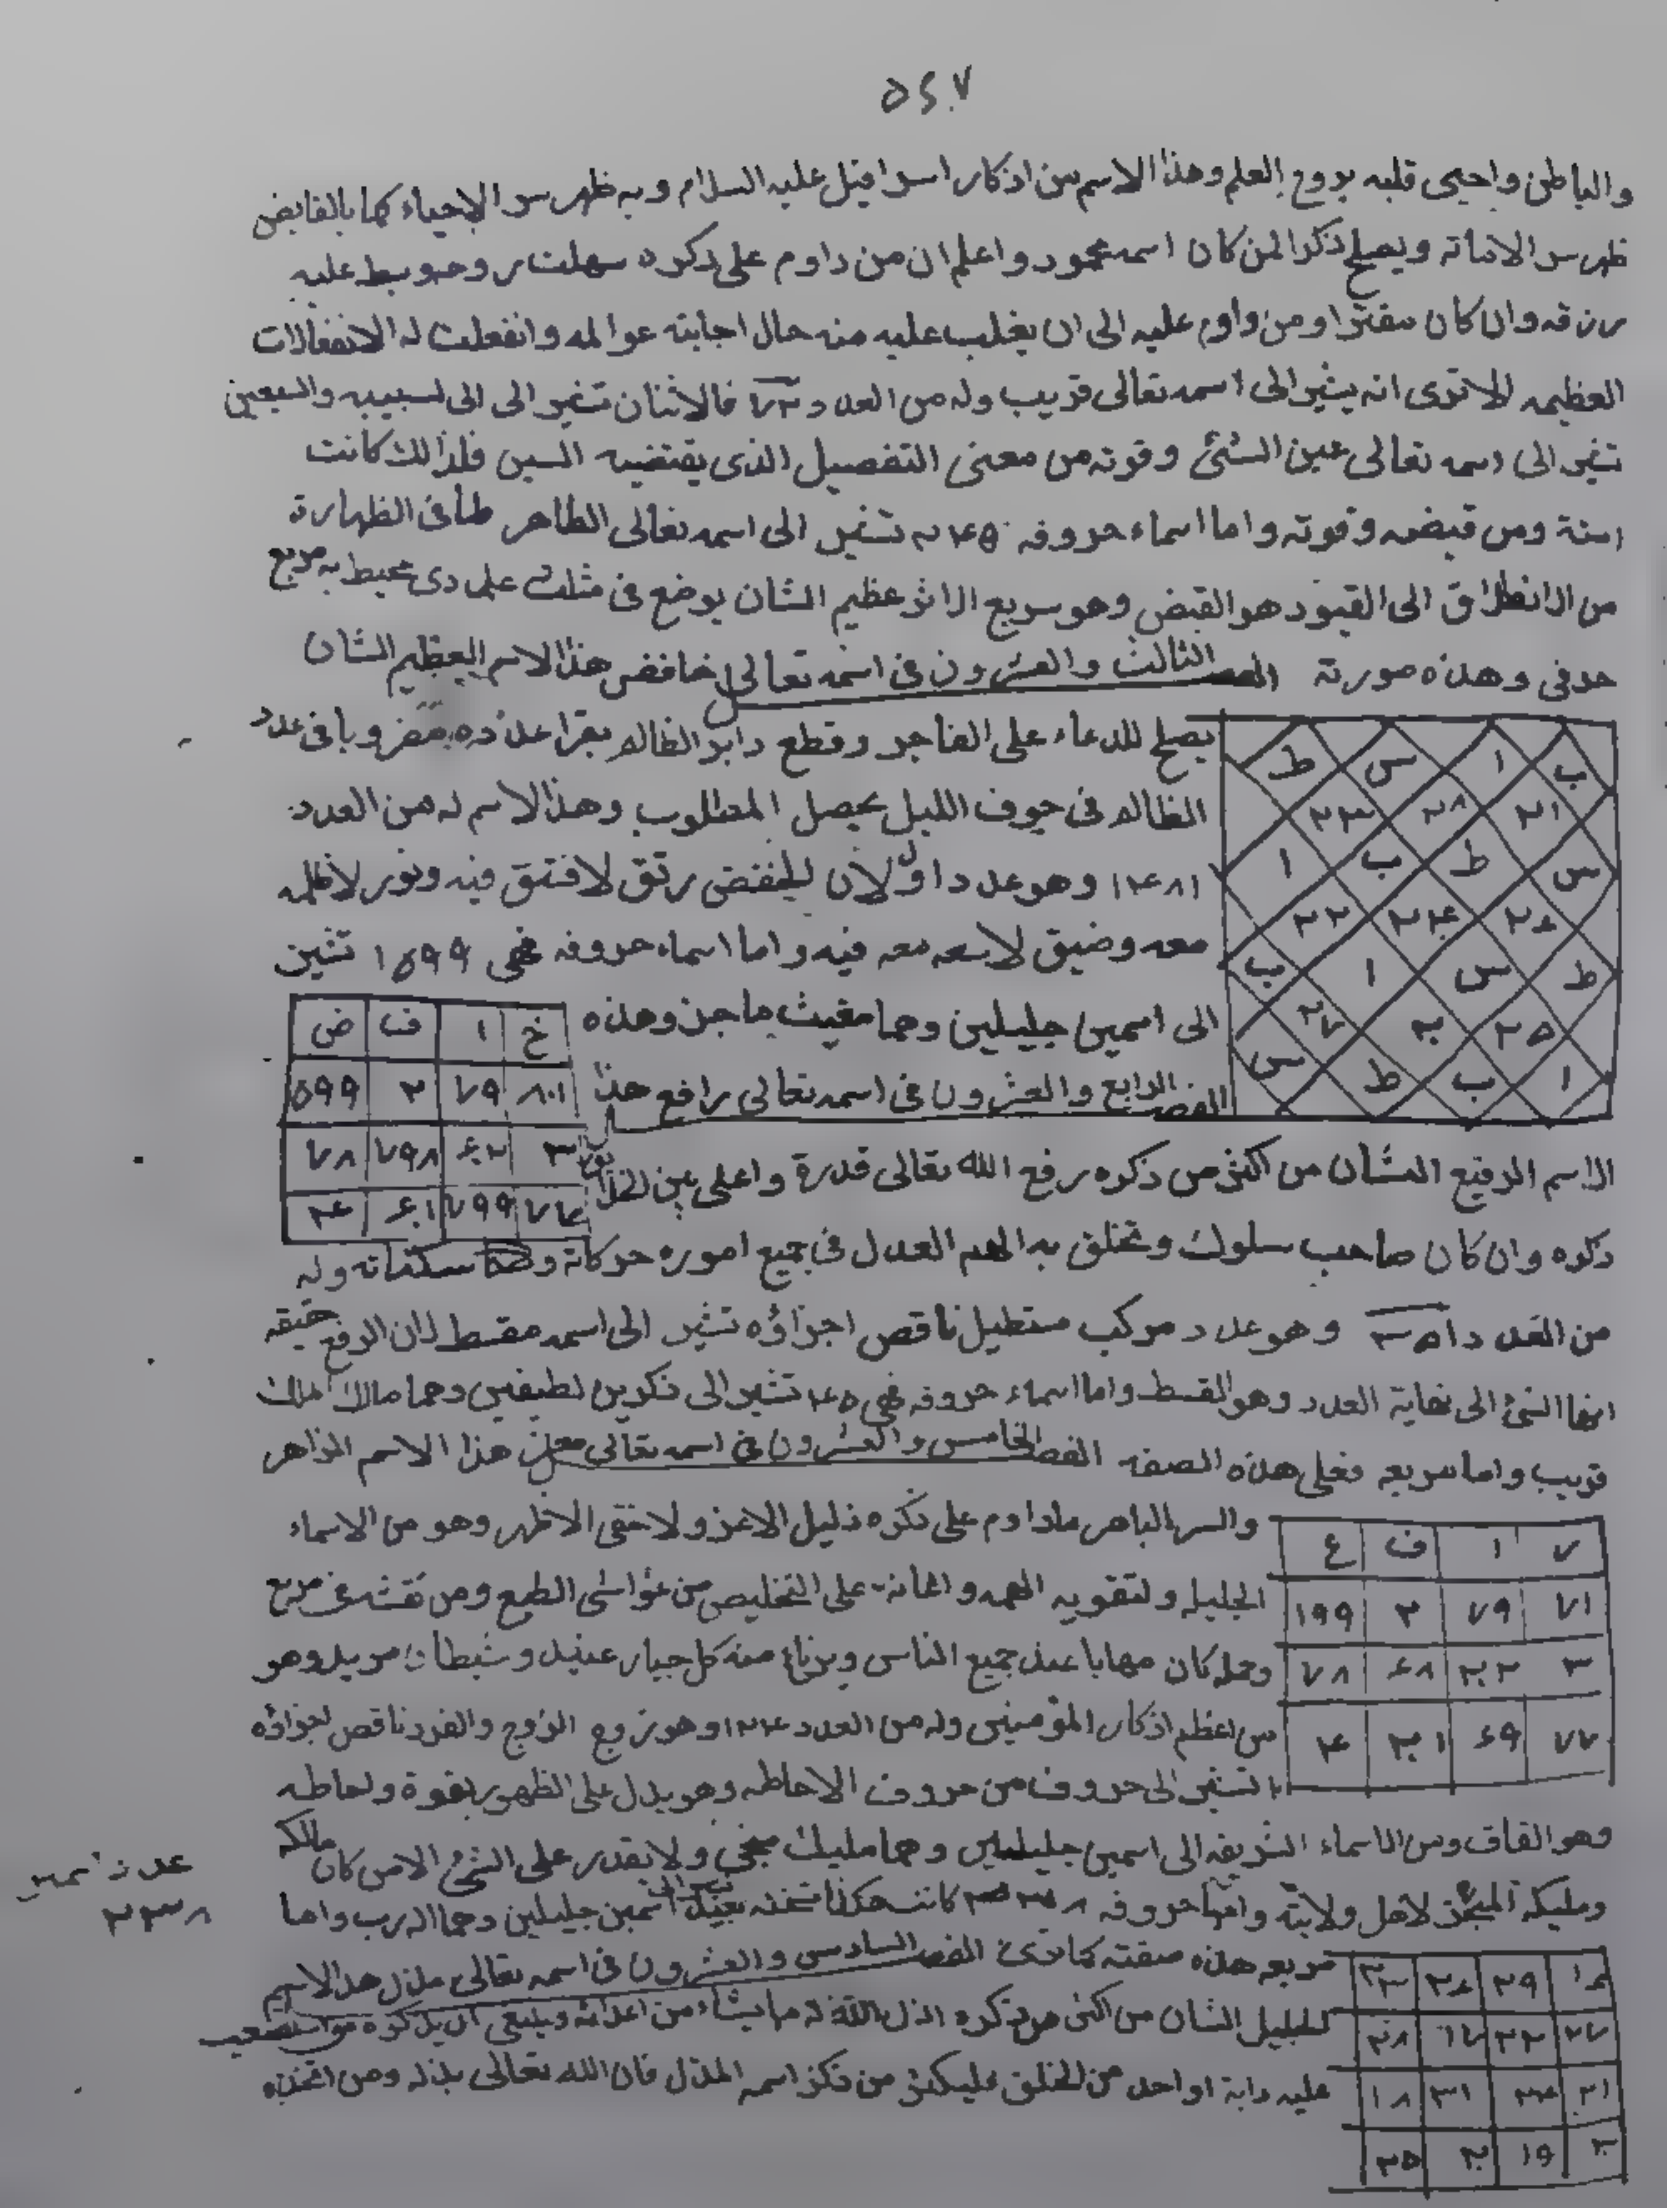 ٥٢٠٧
والباطن واحيى قلبه بروح العلم وهذا الاسم من اذكار اسرافيل عليه السلام وبه ظهر سر الاحياء كما بالقابض
ظهر سر الاماتة ويصلح ذكرا لمن كان اسمه محمود واعلم ان من داوم على ذكره سهلت روحه وبسط عليه
رزقه وان كان مقترا ومن داوم عليه الى ان يغلب عليه منه حال اجابته عوالمه وانفعلت له الانفعالات
العظيمه الا ترى انه يشير الى اسمه تعالى قريب وله من العدد ٧٢ فالاثنان تشير الى الى والسبعين
تشير الى اسمه تعالى عين الشئ وقوته من معنى التفصيل الذى يقتضيه السين فلذالك كانت
ستة ومن قبضه وقوته واما اسماء حروفه تشير الى اسمه تعالى الطاهر طأ فى الطهارة
من الانطلاق الى القيود هو القبض وهو سريع الاثر عظيم الشان يوضع فى مثلث عددى محيط به مربع
حرفى وهذه صورته الفصل الثالث والعشرون فى اسمه تعالى خافض هذا الاسم العظيم الشان
يصلح للدعاء على الفاجر وقطع دابر الظالم يقرا عدده مضروبا فى عدد
الظالم فى جوف الليل يحصل المطلوب وهذا الاسم له من العدد
١٤٨١ وهو عدد اول لان الخفض رتق لا فتق فيه ونور لا ظلمه
معه وضيق لا سعه معه فيه واما اسماء حروفه فهى ١٥٩٩ تشير
الى اسمين جليلين وهما مغيث ماجد وهذه
الفصل الرابع والعشرون فى اسمه تعالى رافع هذا
الاسم الرفيع الشان من اكثر من ذكره رفع الله تعالى قدرة واعلى بين
ذكره وان كان صاحب سلوك وتخلق به الهم العدل فى جميع اموره حركاته وسكناته وله
من العدد ٣٥١ وهو عدد مركب مستطيل ناقص اجزاؤه تشير الى اسمه مقسط لان الرفع حقيقه
انها الشئ الى نهاية العدد وهو القسط واما اسماء حروفه فهى تشير الى ذكرين لطيفين وهما مالك الملك
قريب واما مربعه فعلى هذه الصفه الفصل الخامس والعشرون فى اسمه تعالى معز هذا الاسم الزاهر
والسر الباهر ما داوم على ذكره ذليل الا عز ولا خفى الا ظهر وهو من الاسماء
الجليله ولتقويه الهمه واعانه على التخليص من غواشى الطبع ومن نقشه فى مربع
وحمله كان مهابا عند جميع الناس ويرتاع منه كل جبار عنيد وشيطان مريد وهو
من اعظم اذكار المؤمنين وله من العدد ١٢٤ وهو زوج الزوج والفرد ناقص اجزاؤه
التشير الى حروف من حروف الاحاطه وهو يدل على الظهور بقوة واحاطه
وهو القاف ومن الاسماء الشريفه الى اسمين جليلين وهما مليك منجى ولا يقدر على الشئ الا من كان مالكه
ومليكه المنجز لاهل ولايته واما حروفه كانت هكذا اسمين جليلين وهما الرب واما
مربعه هذه صفته كما ترى الفصل السادس والعشرون فى اسمه تعالى مذل هذا الاسم
الجليل الشان من اكثر من ذكره اذل الله له ما يشاء من اعدائه وينبغى ان يذكره من استصعب
عليه دابة او احد من الخلق فليكثر من ذكر اسمه المذل فان الله تعالى يذله ومن اتخذه
ب ا س ط
٢١ ٢٨ ٢٣
س ط ب ا
٢٦ ٢٤ ٢٢
ط س ا ب
٢٥ ٢٠ ٢٧
ا ب ط س
خ ا ف ض
٨٠١ ٧٩ ٢ ٥٩٩
٣ ٦٠٢ ٧٩٨ ٧٨
٧٧ ٧٩٩ ٦٠١ ٤
ر ا ف ع
٧١ ٧٩ ٢ ١٩٩
٣ ٢٠٢ ٦٨ ٧٨
٧٧ ٦٩ ٢٠١ ٤
٢٩ ٢٦ ٢٣
٢٧ ٢٢ ١٧ ٢٨
٢١ ٢٤ ٣١ ١٨
٣٠ ١٩ ٢٠ ٢٥
عدد اسمين
٢٣٨